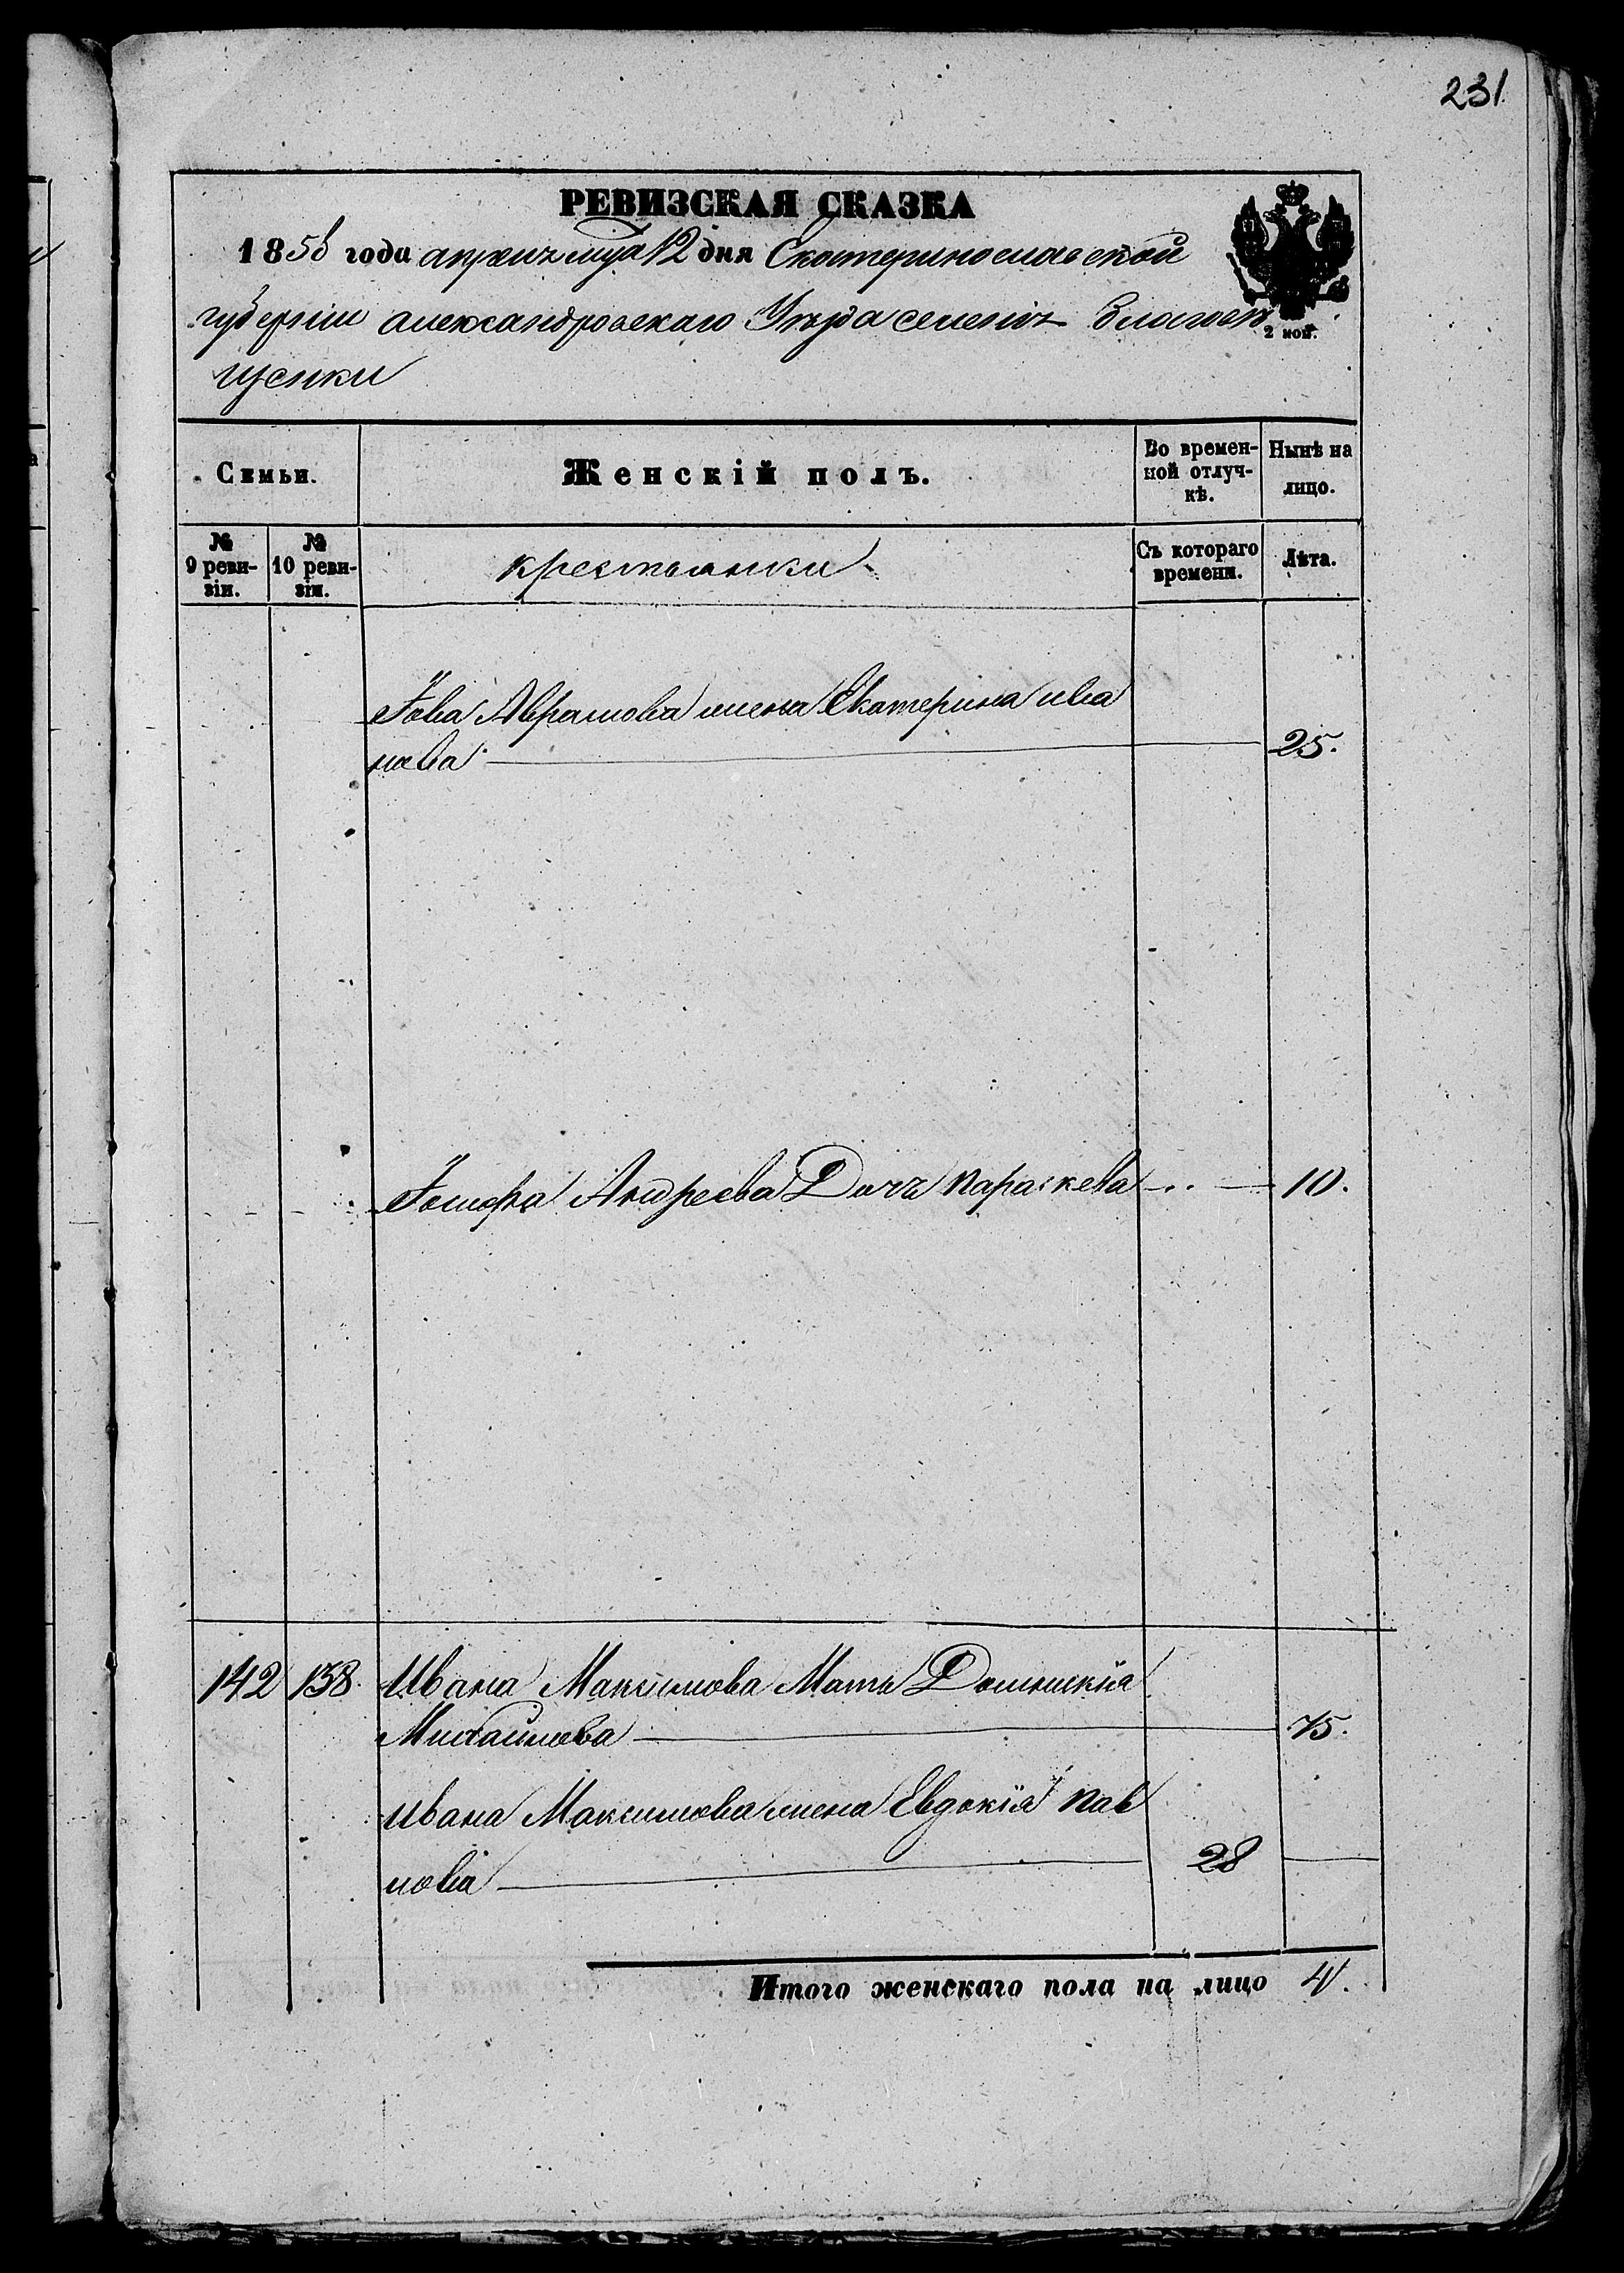 231
РЕВИЗСКАЯ СКАЗКА
1858 года апреля мца 12 дня Екатеринославской
губернии александровскаго Уѣзда селения Благовѣ
щенки
2 коп.
Семьи.
Женскій полъ.
Во времен-
ной отлуч-
кѣ.
Нынѣ на
лицо.
№
9 реви-
зіи.
№
10 реви-
зіи.
крестьянки
Съ котораго
времени.
Лѣта.
Іова Аврамова жена Екатерина ива
нова 25.
Іосифа Андреева Дочь параскева 10.
142 138. Ивана Максимова Мать Домникія
Михайлова 75.
Ивана Максимова жена Евдокія пав
лова 28
Итого женскаго пола на лицо 4.